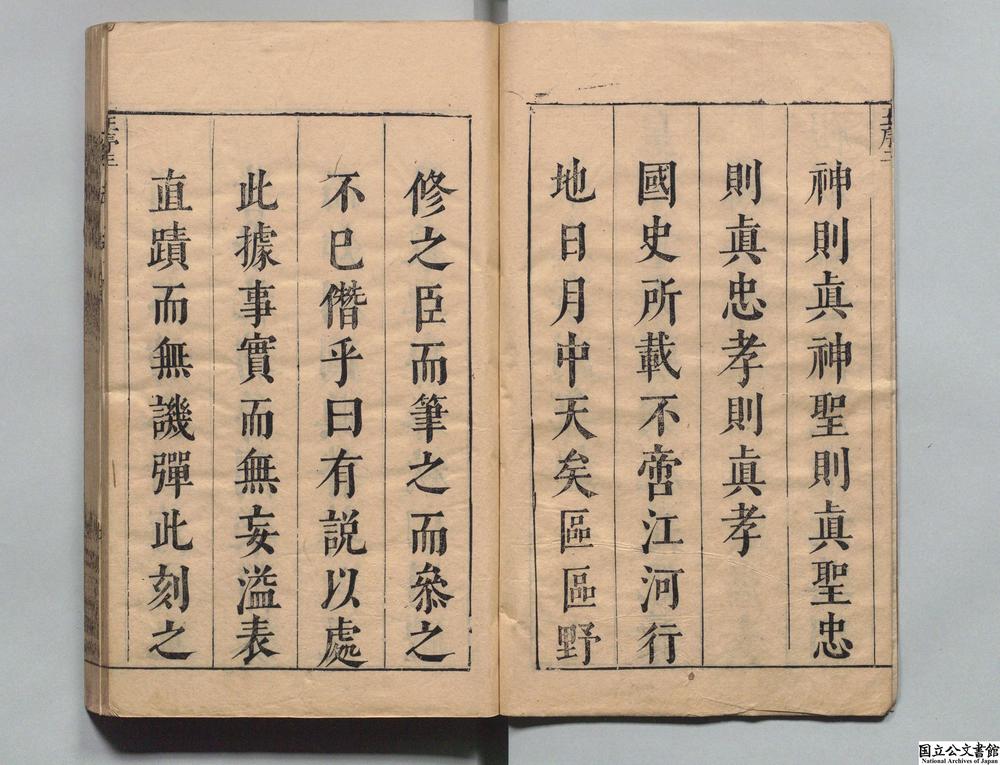 神則眞神聖則眞聖忠
則眞忠孝則眞孝
國史所載不啻江河行
地日月中天矣區區野
修之臣而筆之而叅之
不已僭乎曰有説以處
此據事實而無妄溢表
直蹟而無譏彈此刻之
国立公文書館
National Archives of Japan